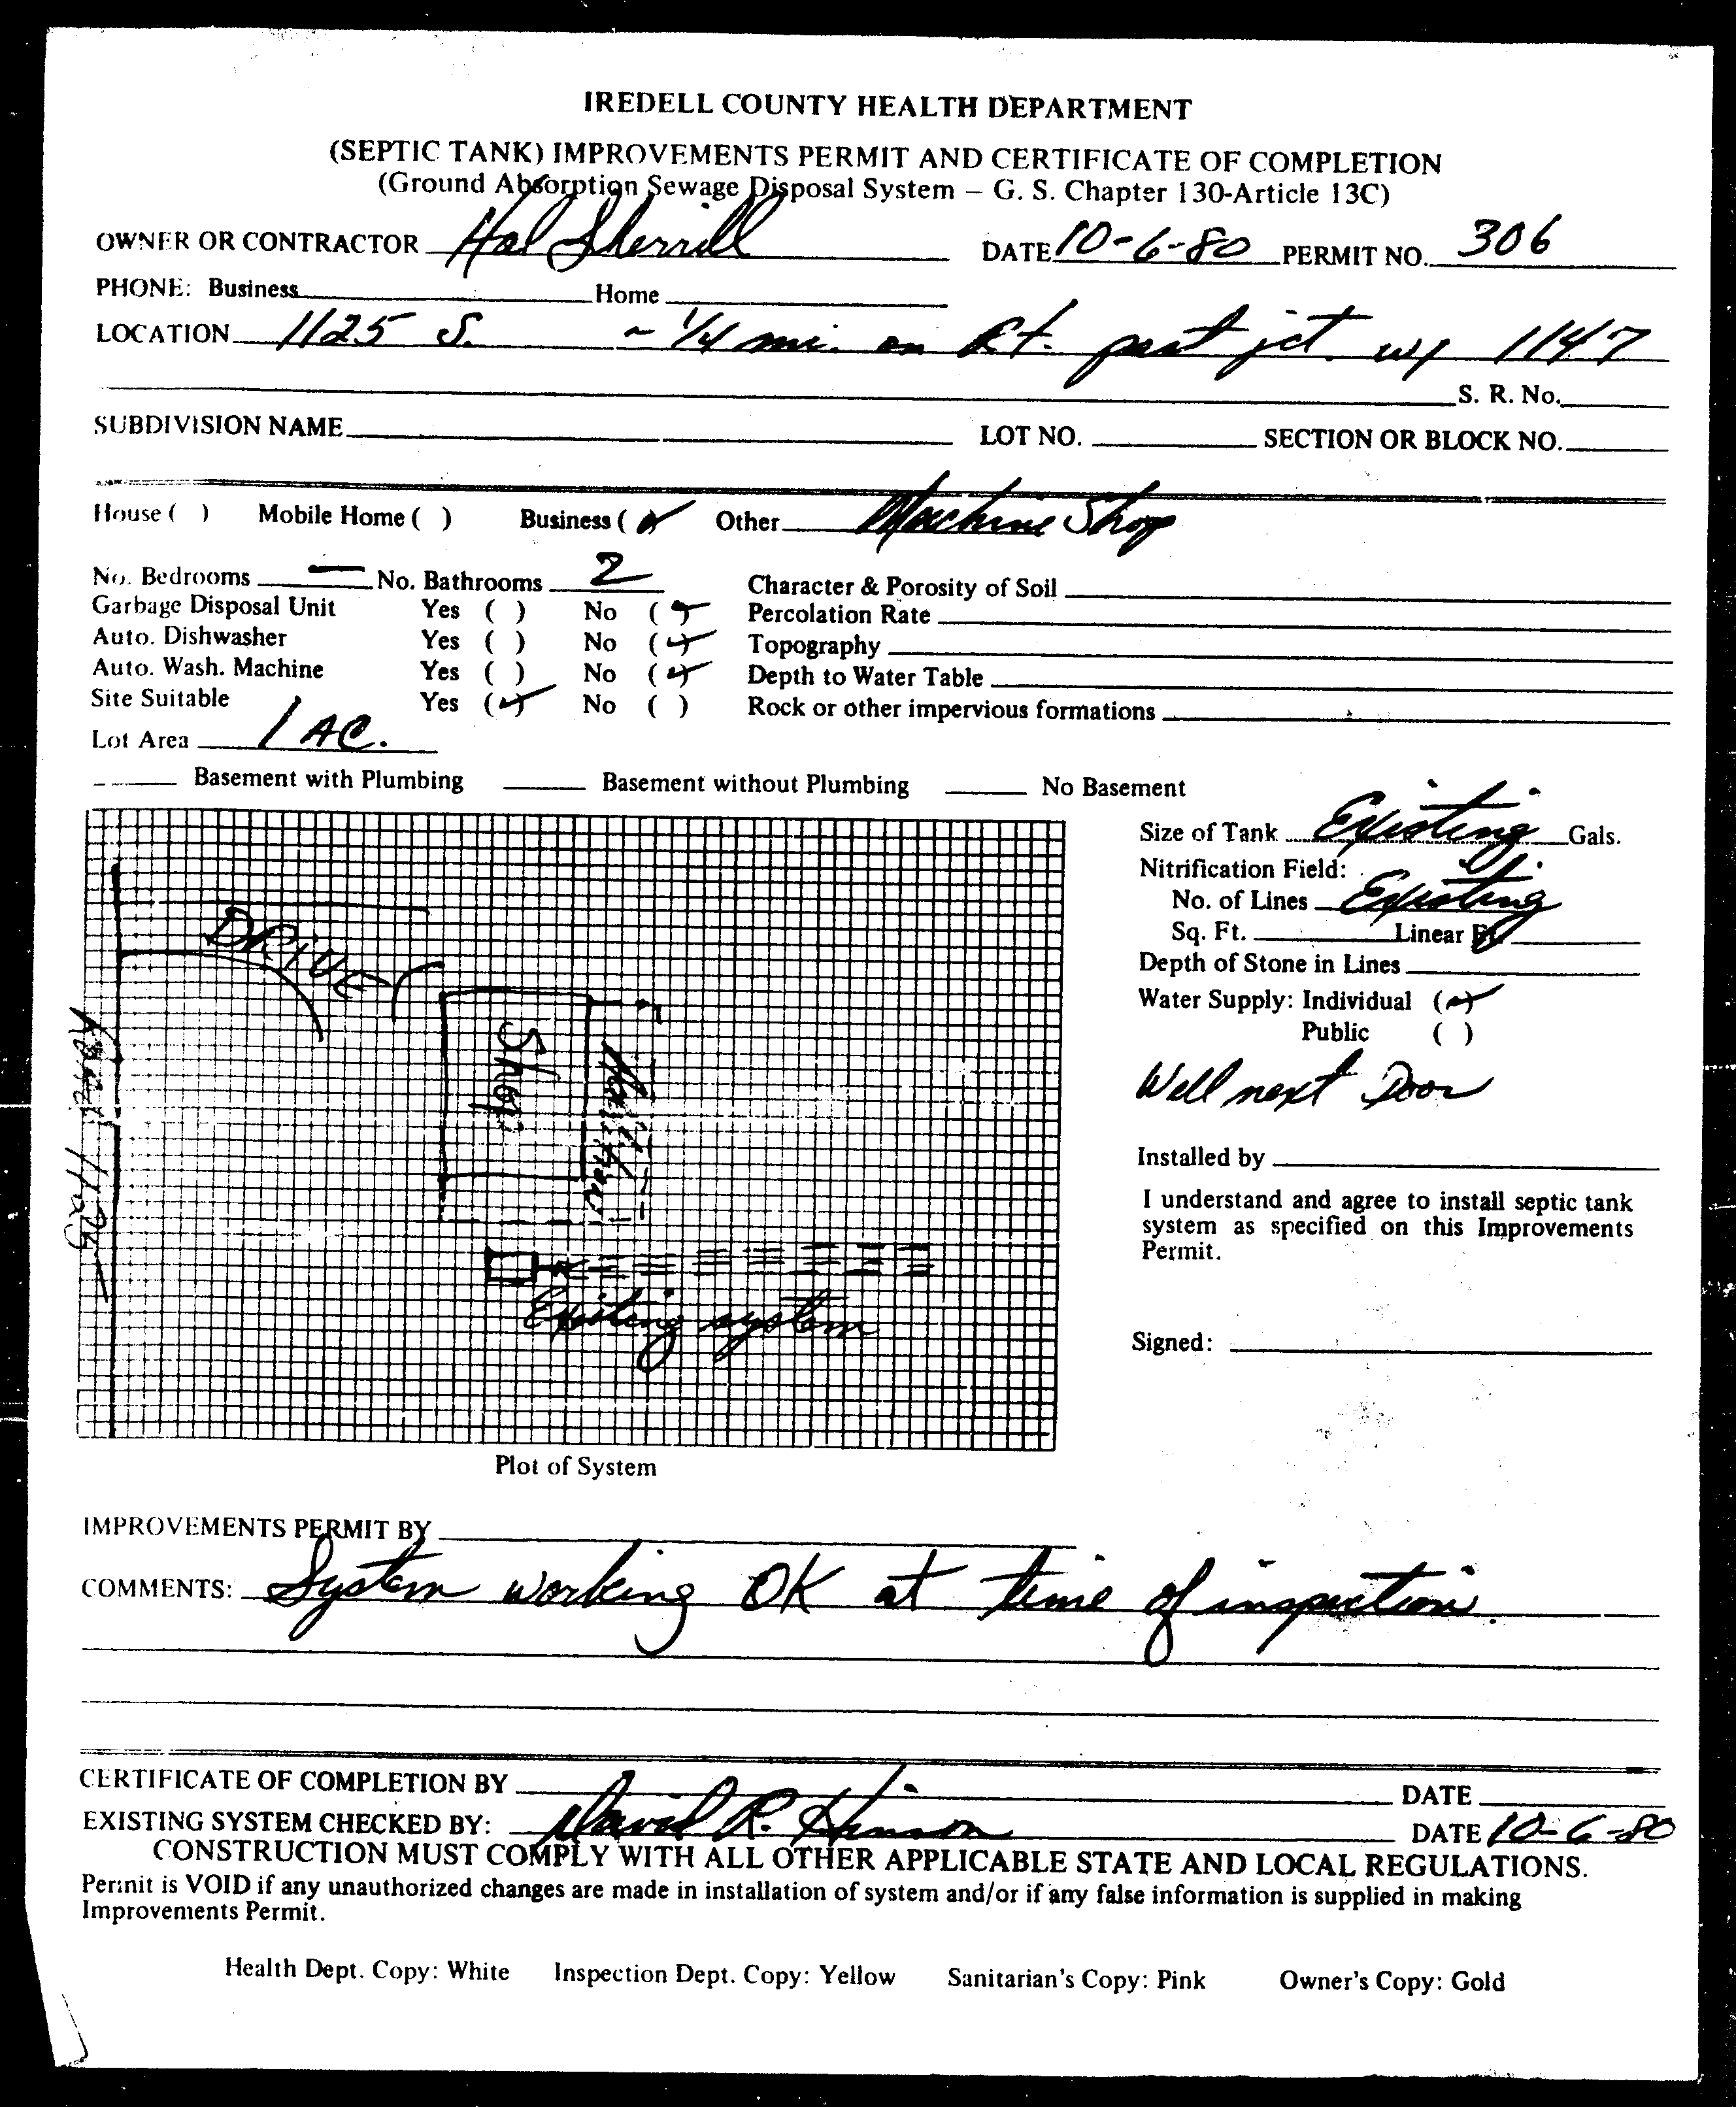 IREDELL COUNTY HEALTH DEPARTMENT
(SEPTIC TANK) IMPROVEMENTS PERMIT AND CERTIFICATE OF COMPLETION
(Ground Absorption Sewage Disposal System – G. S. Chapter 130-Article 13C)
OWNER OR CONTRACTOR Hal Sherrill DATE 10-6-80 PERMIT NO. 306
PHONE: Business Home
LOCATION 1125 S. ~ 1/4 mi. on Rt. past jct. w/ 1147
S. R. No.
SUBDIVISION NAME LOT NO. SECTION OR BLOCK NO.
House ( ) Mobile Home ( ) Business (✓) Other Machine Shop
No. Bedrooms — No. Bathrooms 2 Character & Porosity of Soil
Garbage Disposal Unit Yes ( ) No (✓) Percolation Rate
Auto. Dishwasher Yes ( ) No (✓) Topography
Auto. Wash. Machine Yes ( ) No (✓) Depth to Water Table
Site Suitable Yes (✓) No ( ) Rock or other impervious formations
Lot Area 1 AC.
Basement with Plumbing Basement without Plumbing No Basement
Size of Tank Existing Gals.
Nitrification Field:
No. of Lines Existing
Sq. Ft. Linear Ft.
Depth of Stone in Lines
Water Supply: Individual (✓)
Public ( )
Well next Door
Installed by
I understand and agree to install septic tank
system as specified on this Improvements
Permit.
Signed:
DRIVE
Shop
Existing system
Plot of System
IMPROVEMENTS PERMIT BY
COMMENTS: System working OK at time of inspection.
CERTIFICATE OF COMPLETION BY DATE
EXISTING SYSTEM CHECKED BY: David R. Hinson DATE 10-6-80
CONSTRUCTION MUST COMPLY WITH ALL OTHER APPLICABLE STATE AND LOCAL REGULATIONS.
Permit is VOID if any unauthorized changes are made in installation of system and/or if any false information is supplied in making
Improvements Permit.
Health Dept. Copy: White Inspection Dept. Copy: Yellow Sanitarian's Copy: Pink Owner's Copy: Gold